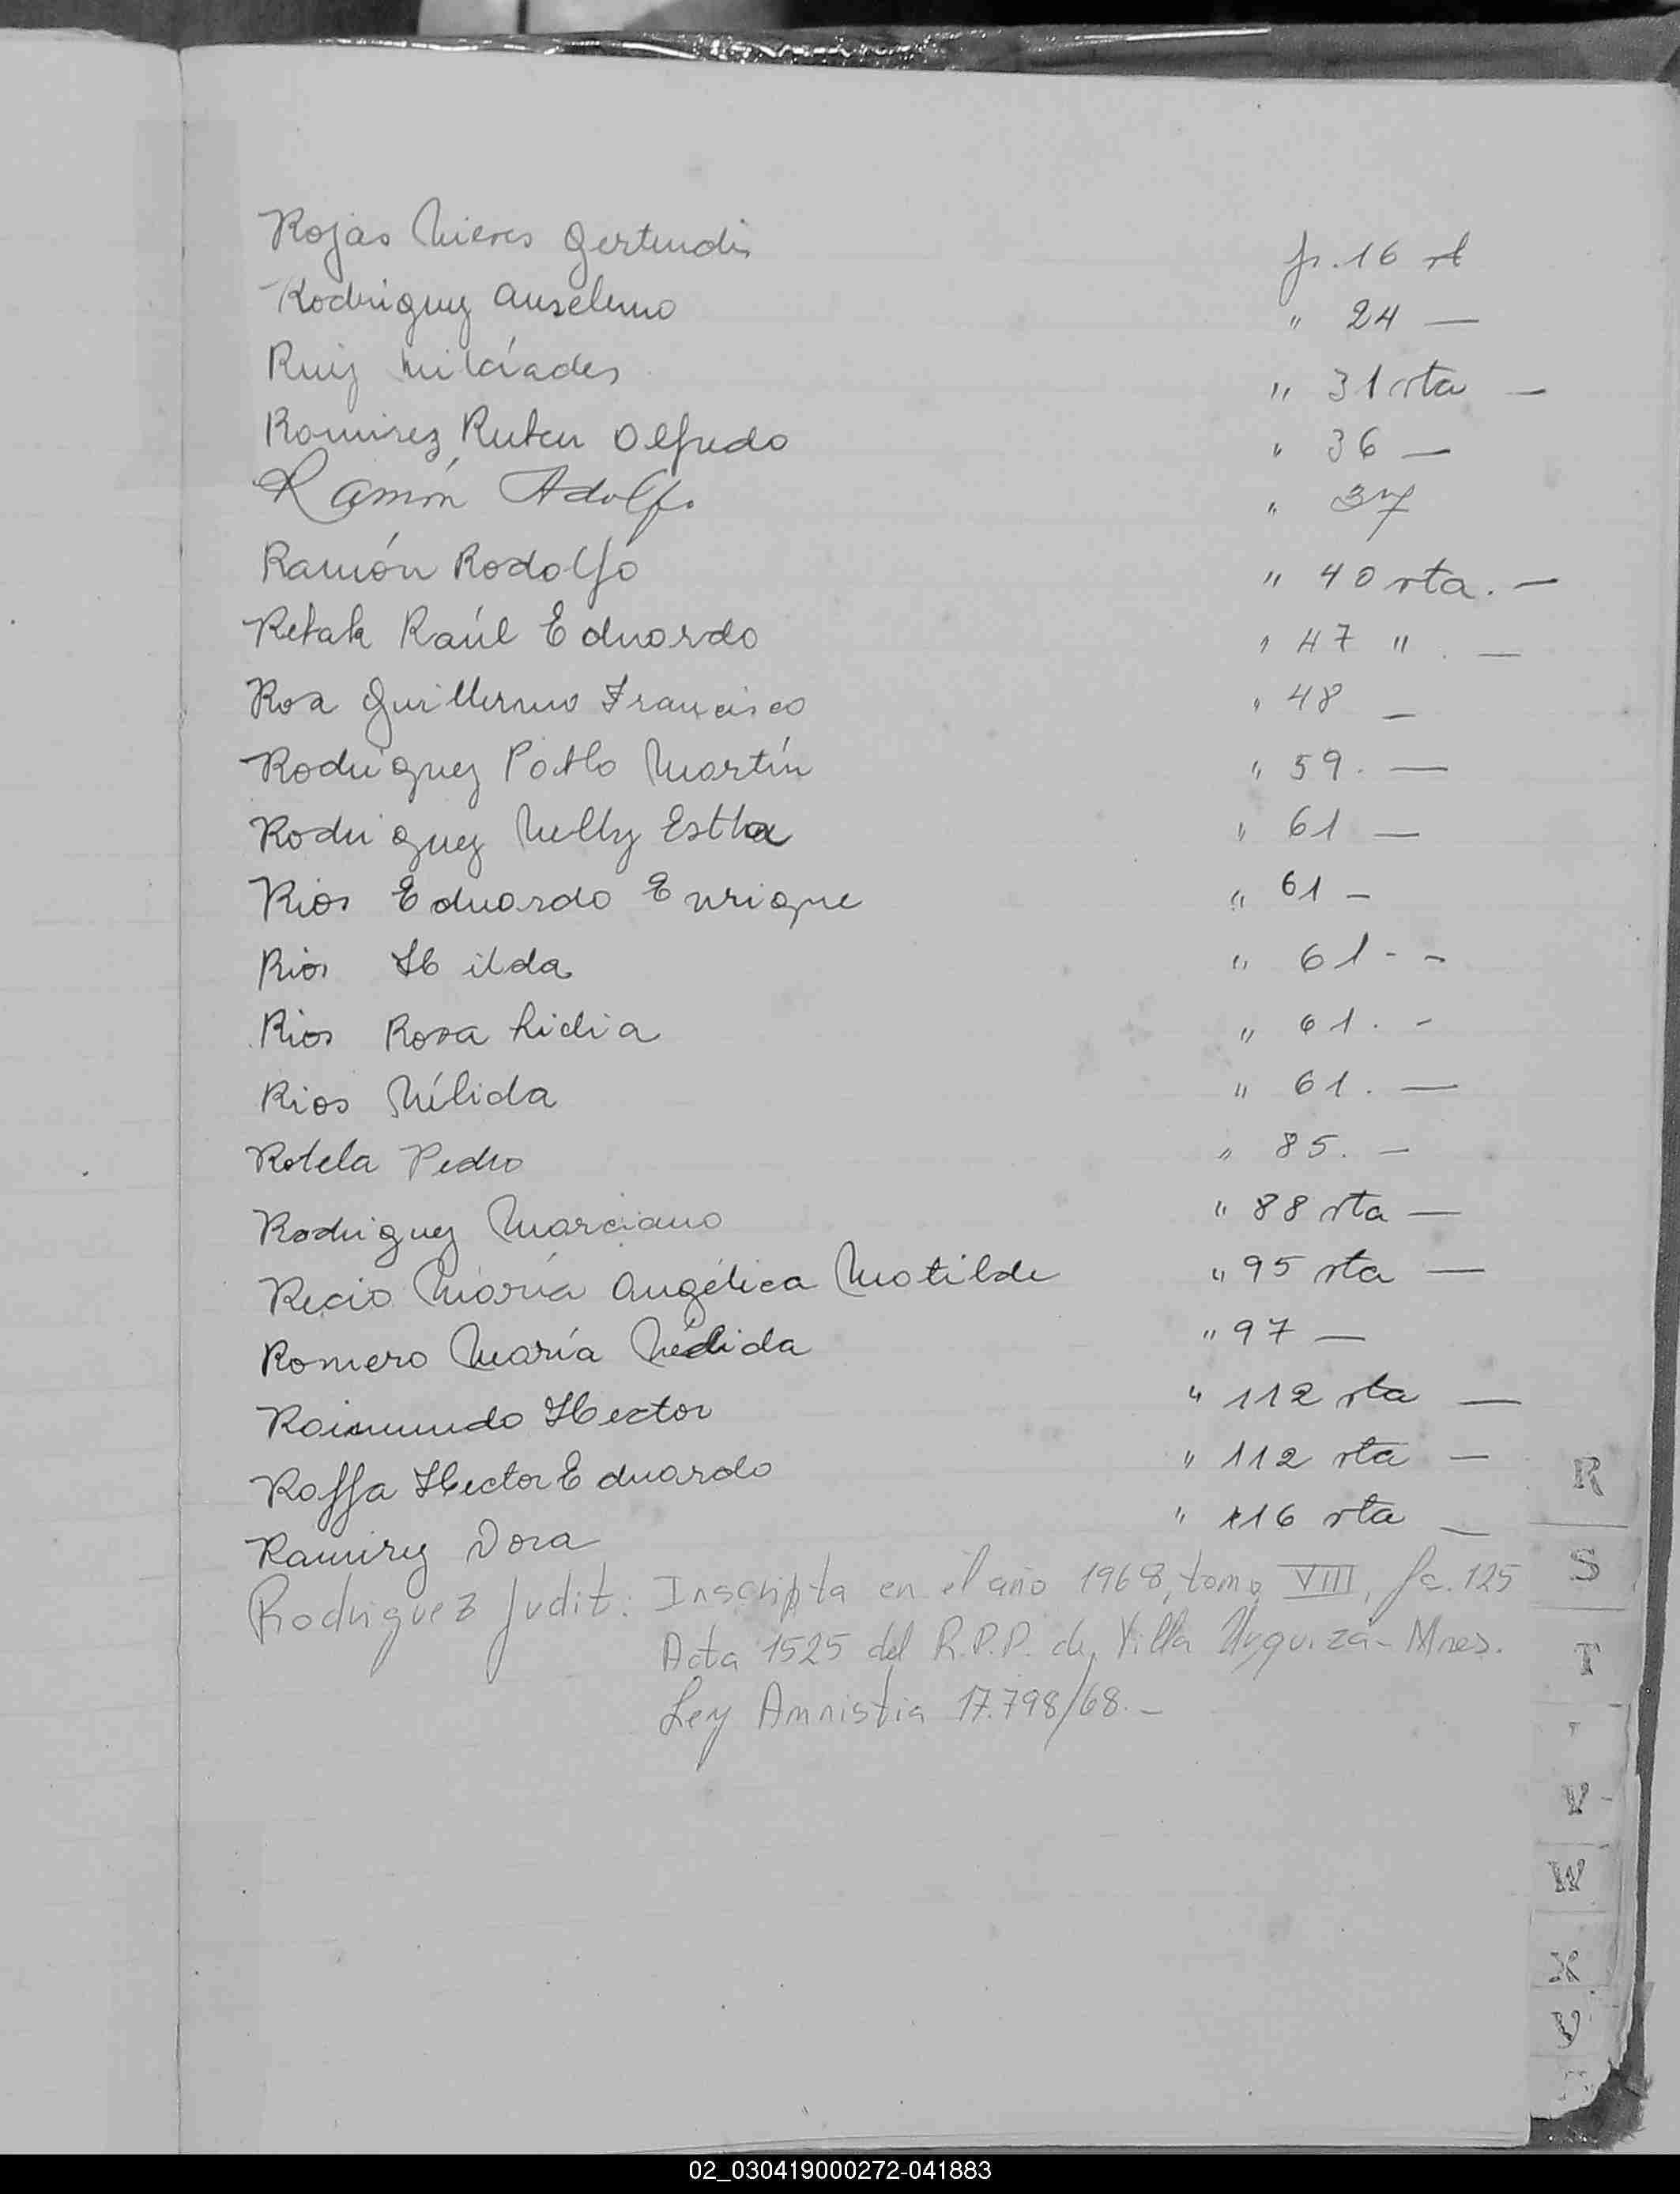 Rojas Nieves Gertrudis fs. 16 vt
Rodriguez Anselmo " 24 —
Ruiz Milcíades " 31 vta —
Romirez Ruben Olfredo " 36 —
Ramón Adolfo " 37
Ramón Rodolfo " 40 vta. —
Retak Raúl Eduardo " 47 " . —
Roa Guillermo Francisco " 48 —
Rodriguez Pablo Martín " 59. —
Rodriguez Nelly Estha " 61 —
Rios Eduardo Enrique " 61 —
Rios Hilda " 61 - -
Rios Rosa Lidia " 61. -
Rios Nélida " 61. —
Rotela Pedro " 85. —
Rodriguez Marciano " 88 vta —
Recio María Angélica Matilde " 95 vta —
Romero María Nélida " 97 —
Raimundo Hector " 112 vta —
Raffa Hector Eduardo " 112 vta —
Ramirez Dora " 116 vta —
Rodriguez Judit: Inscripta en el año 1968, tomo VIII, fc. 125
Acta 1525 del R.P.P. de Villa Urquiza - Mnes.
Ley Amnistia 17.798/68. -
R
S
T
V
W
X
02_030419000272-041883